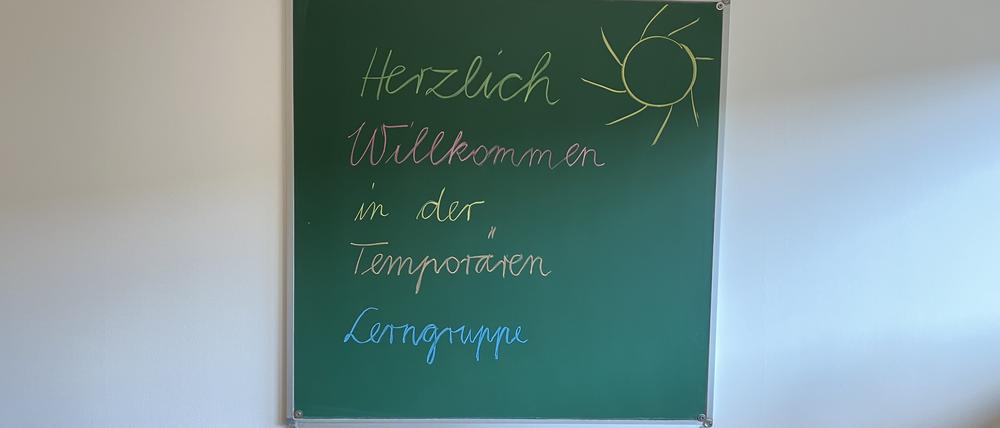 Herzlich
Willkommen
in der
Temporären
Lerngruppe